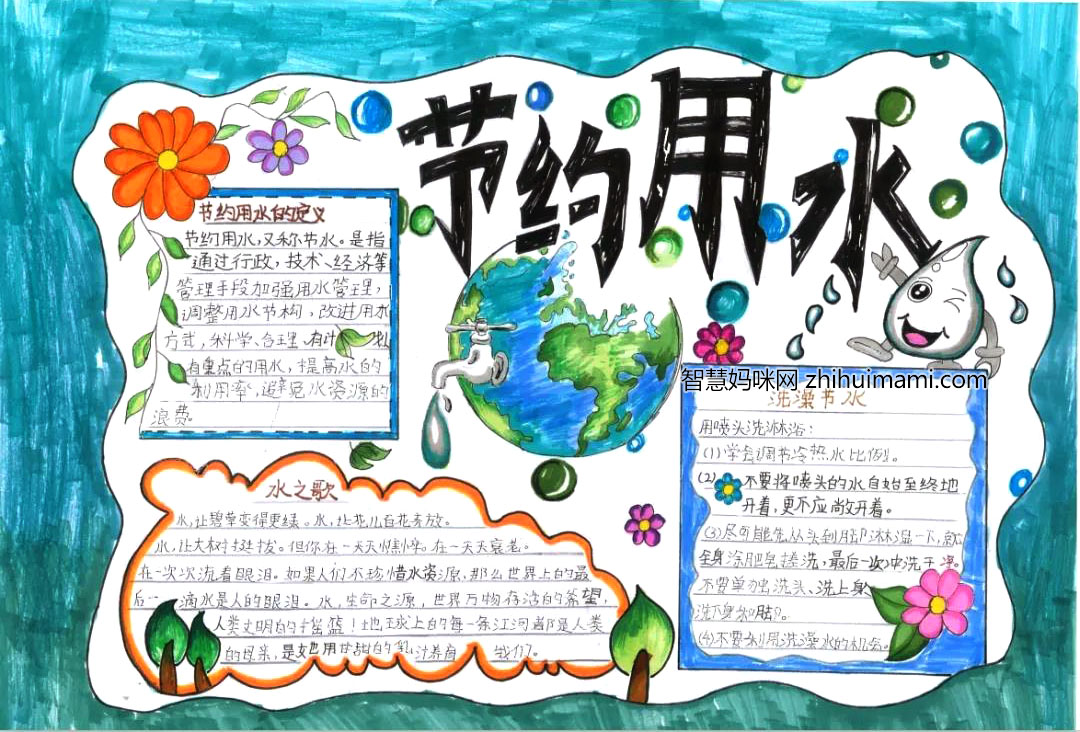 节约用水
节约用水的定义
节约用水,又称节水。是指
通过行政,技术、经济等
管理手段加强用水管理,
调整用水节构,改进用水
方式,科学、合理、有计 划
有重点的用水,提高水的
利用率,避免水资源的
浪费。
智慧妈咪网 zhihuimami.com
洗澡节水
用喷头洗淋浴:
(1)学会调节冷热水比例。
(2) 不要将喷头的水自始至终地
开着,更不应敞开着。
(3)尽可能先从头到脚淋湿一下,就
全身涂肥皂搓洗,最后一次冲洗干净。
不要单独洗头、洗上身、
洗下身和脚。
(4)不要利用洗澡水的机会。
水之歌
水,让碧草变得更绿。水,让花儿百花齐放。
水,让大树挺拔。但你在一天天憔悴。在一天天衰老。
在一次次流着眼泪。如果人们不珍惜水资源,那么世界上的最
后一 滴水是人的眼泪。水,生命之源,世界万物存活的希望,
人类文明的摇篮!地球上的每一条江河都是人类
的母亲,是她用甘甜的乳 汁养育 我们。